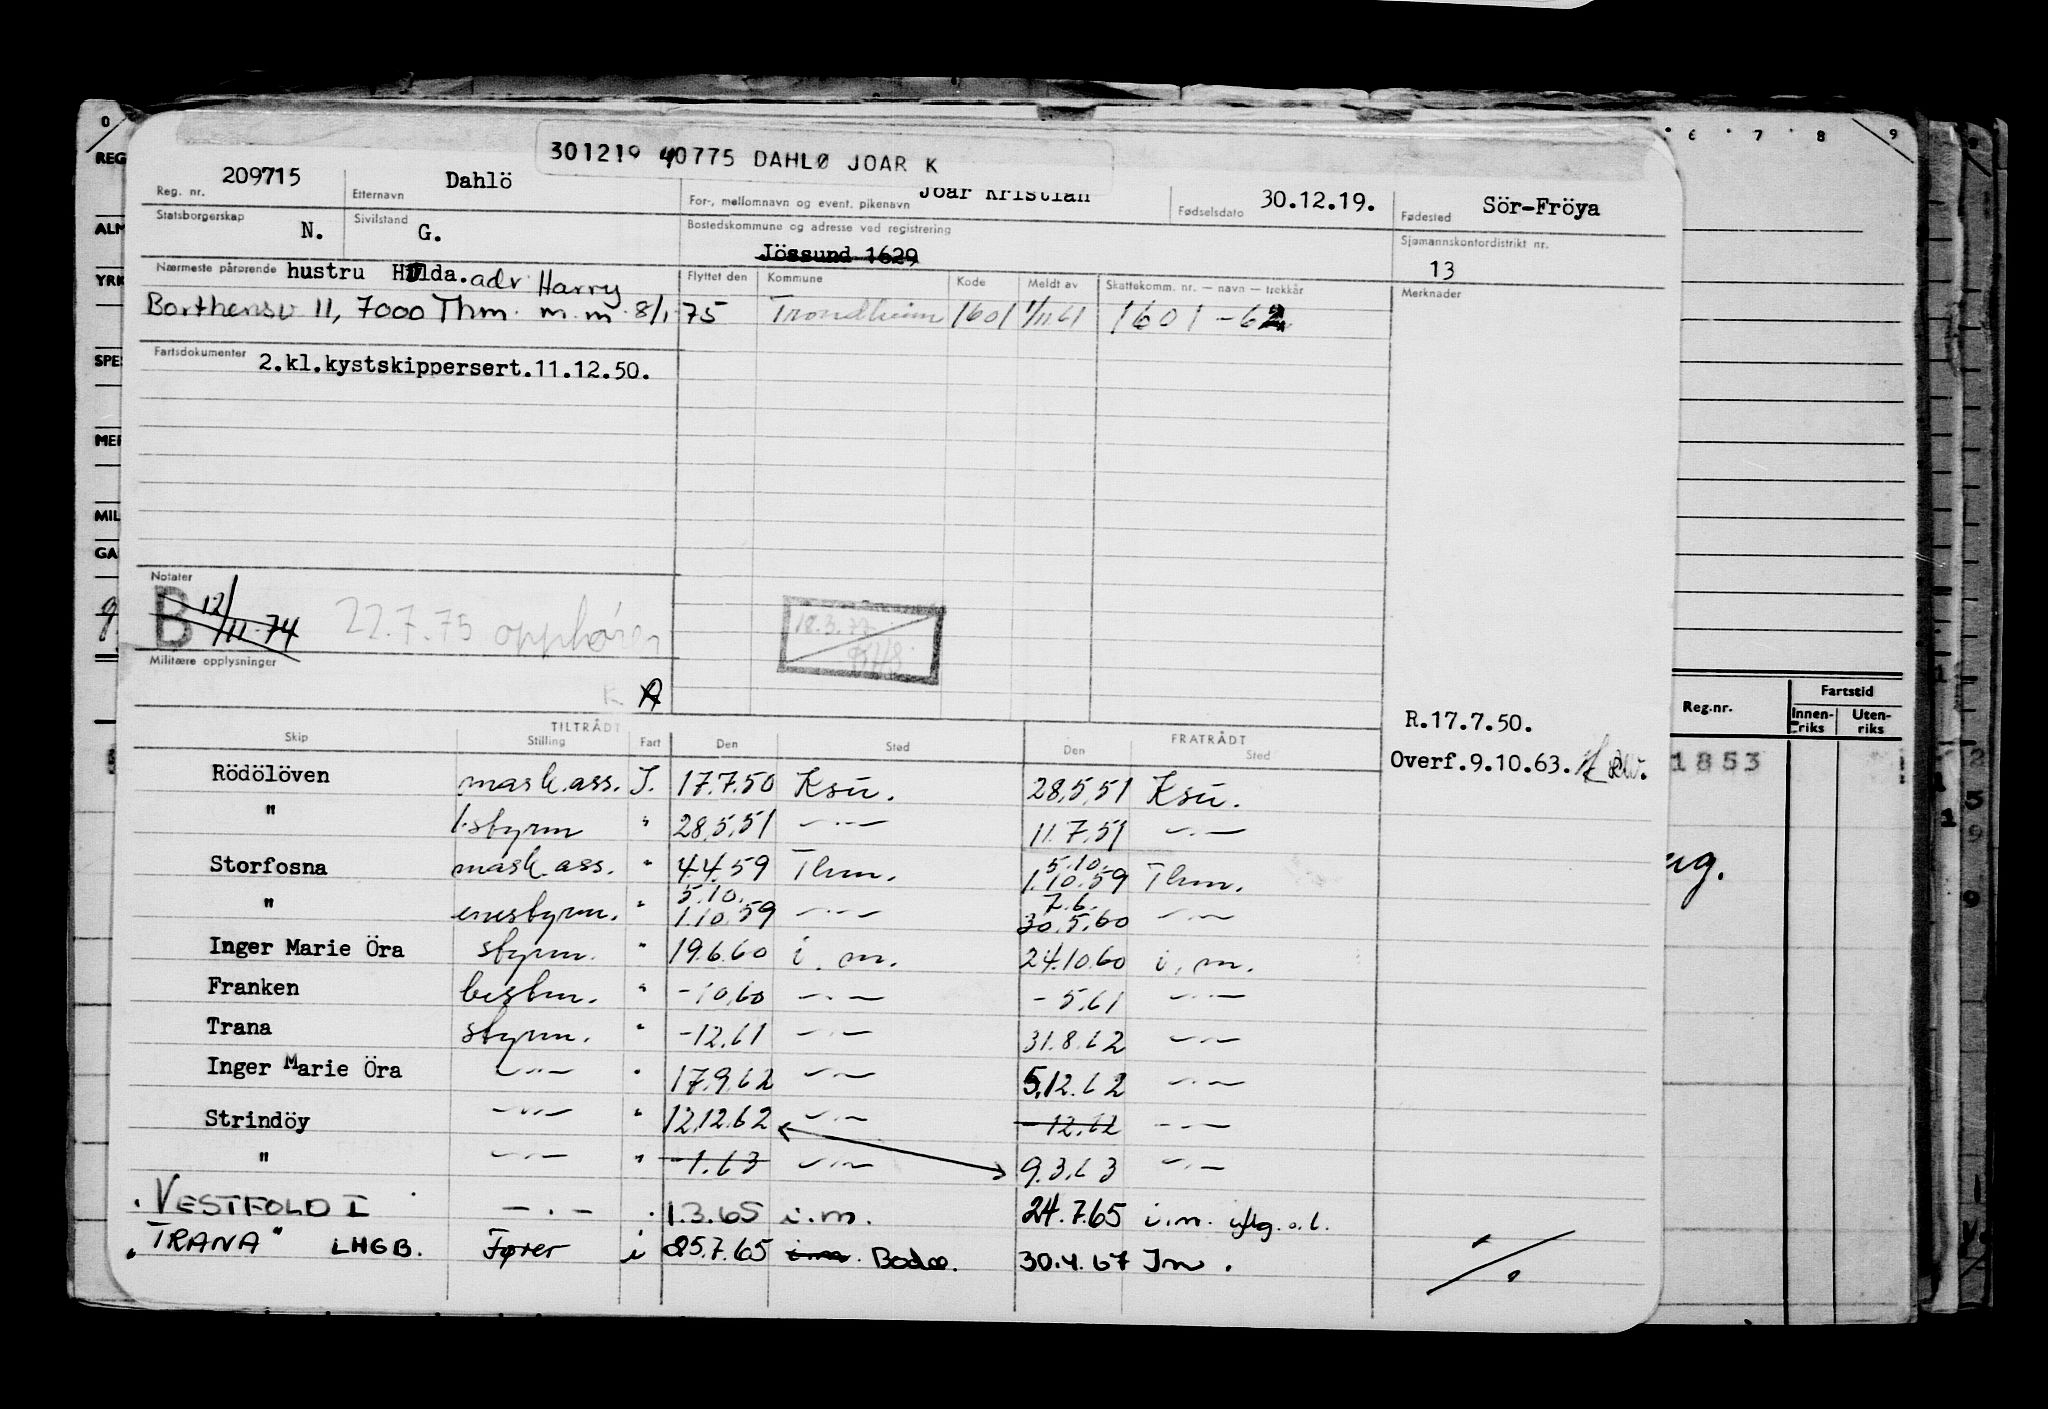 301219 40775 DAHLØ JOAR K
Reg. nr. 209715 Etternavn Dahlö For-, mellomnavn og event. pikenavn Joar Kristian Fødselsdato 30.12.19. Fødested Sör-Fröya
Statsborgerskap N. Sivilstand G. Bostedskommune og adresse ved registrering Jössund 1629 Sjømannskontordistrikt nr. 13
Nærmeste pårørende hustru Hilda. adr Harry Flyttet den Kommune Kode Meldt av Skattekomm. nr. — navn — trekkår Merknader
Borthensv 11, 7000 Thm. m.m. 8/1-75 Trondheim 1601 1/11 61 1601-62
Fartsdokumenter 2.kl.kystskippersert.11.12.50.
Notater
B 12/11-74 22.7.75 opphører
18.3.77
Militære opplysninger
K A
R.17.7.50.
Overf.9.10.63.
TILTRÅDT FRATRÅDT
Skip Stilling Fart Den Sted Den Sted
Rödölöven mask.ass. I. 17.7.50 Ksu. 28.5.51 Ksu.
" 1.styrm " 28.5.51 —"— 11.7.51 —"—
Storfosna mask.ass. " 4.4.59 Thm. 5.10. 1.10.59 Thm.
" enestyrm. " 5.10. 1.10.59 —"— 7.6. 30.5.60 —"—
Inger Marie Öra styrm. " 19.6.60 i.m. 24.10.60 i.m.
Franken bestm. " -10.60 —"— -5.61 —"—
Trana styrm. " -12.61 —"— 31.8.62 —"—
Inger Marie Öra —"— " 17.9.62 —"— 5.12.62 —"—
Strindöy —"— " 12.12.62 —"— -12.62 —"—
" —"— " -1.63 —"— 9.3.63 —"—
"VESTFOLD I —"— " 1.3.65 i.m. 24.7.65 i.m. iflg. o.l.
"TRANA" LHGB. Fører i 25.7.65 i.m. Bodø. 30.4.67 Im.
0 6 7 8 9
REG
ALM
YRK
SPE
MER
MIL
GA
Reg.nr. Fartstid
Innen-riks Uten-riks
1853